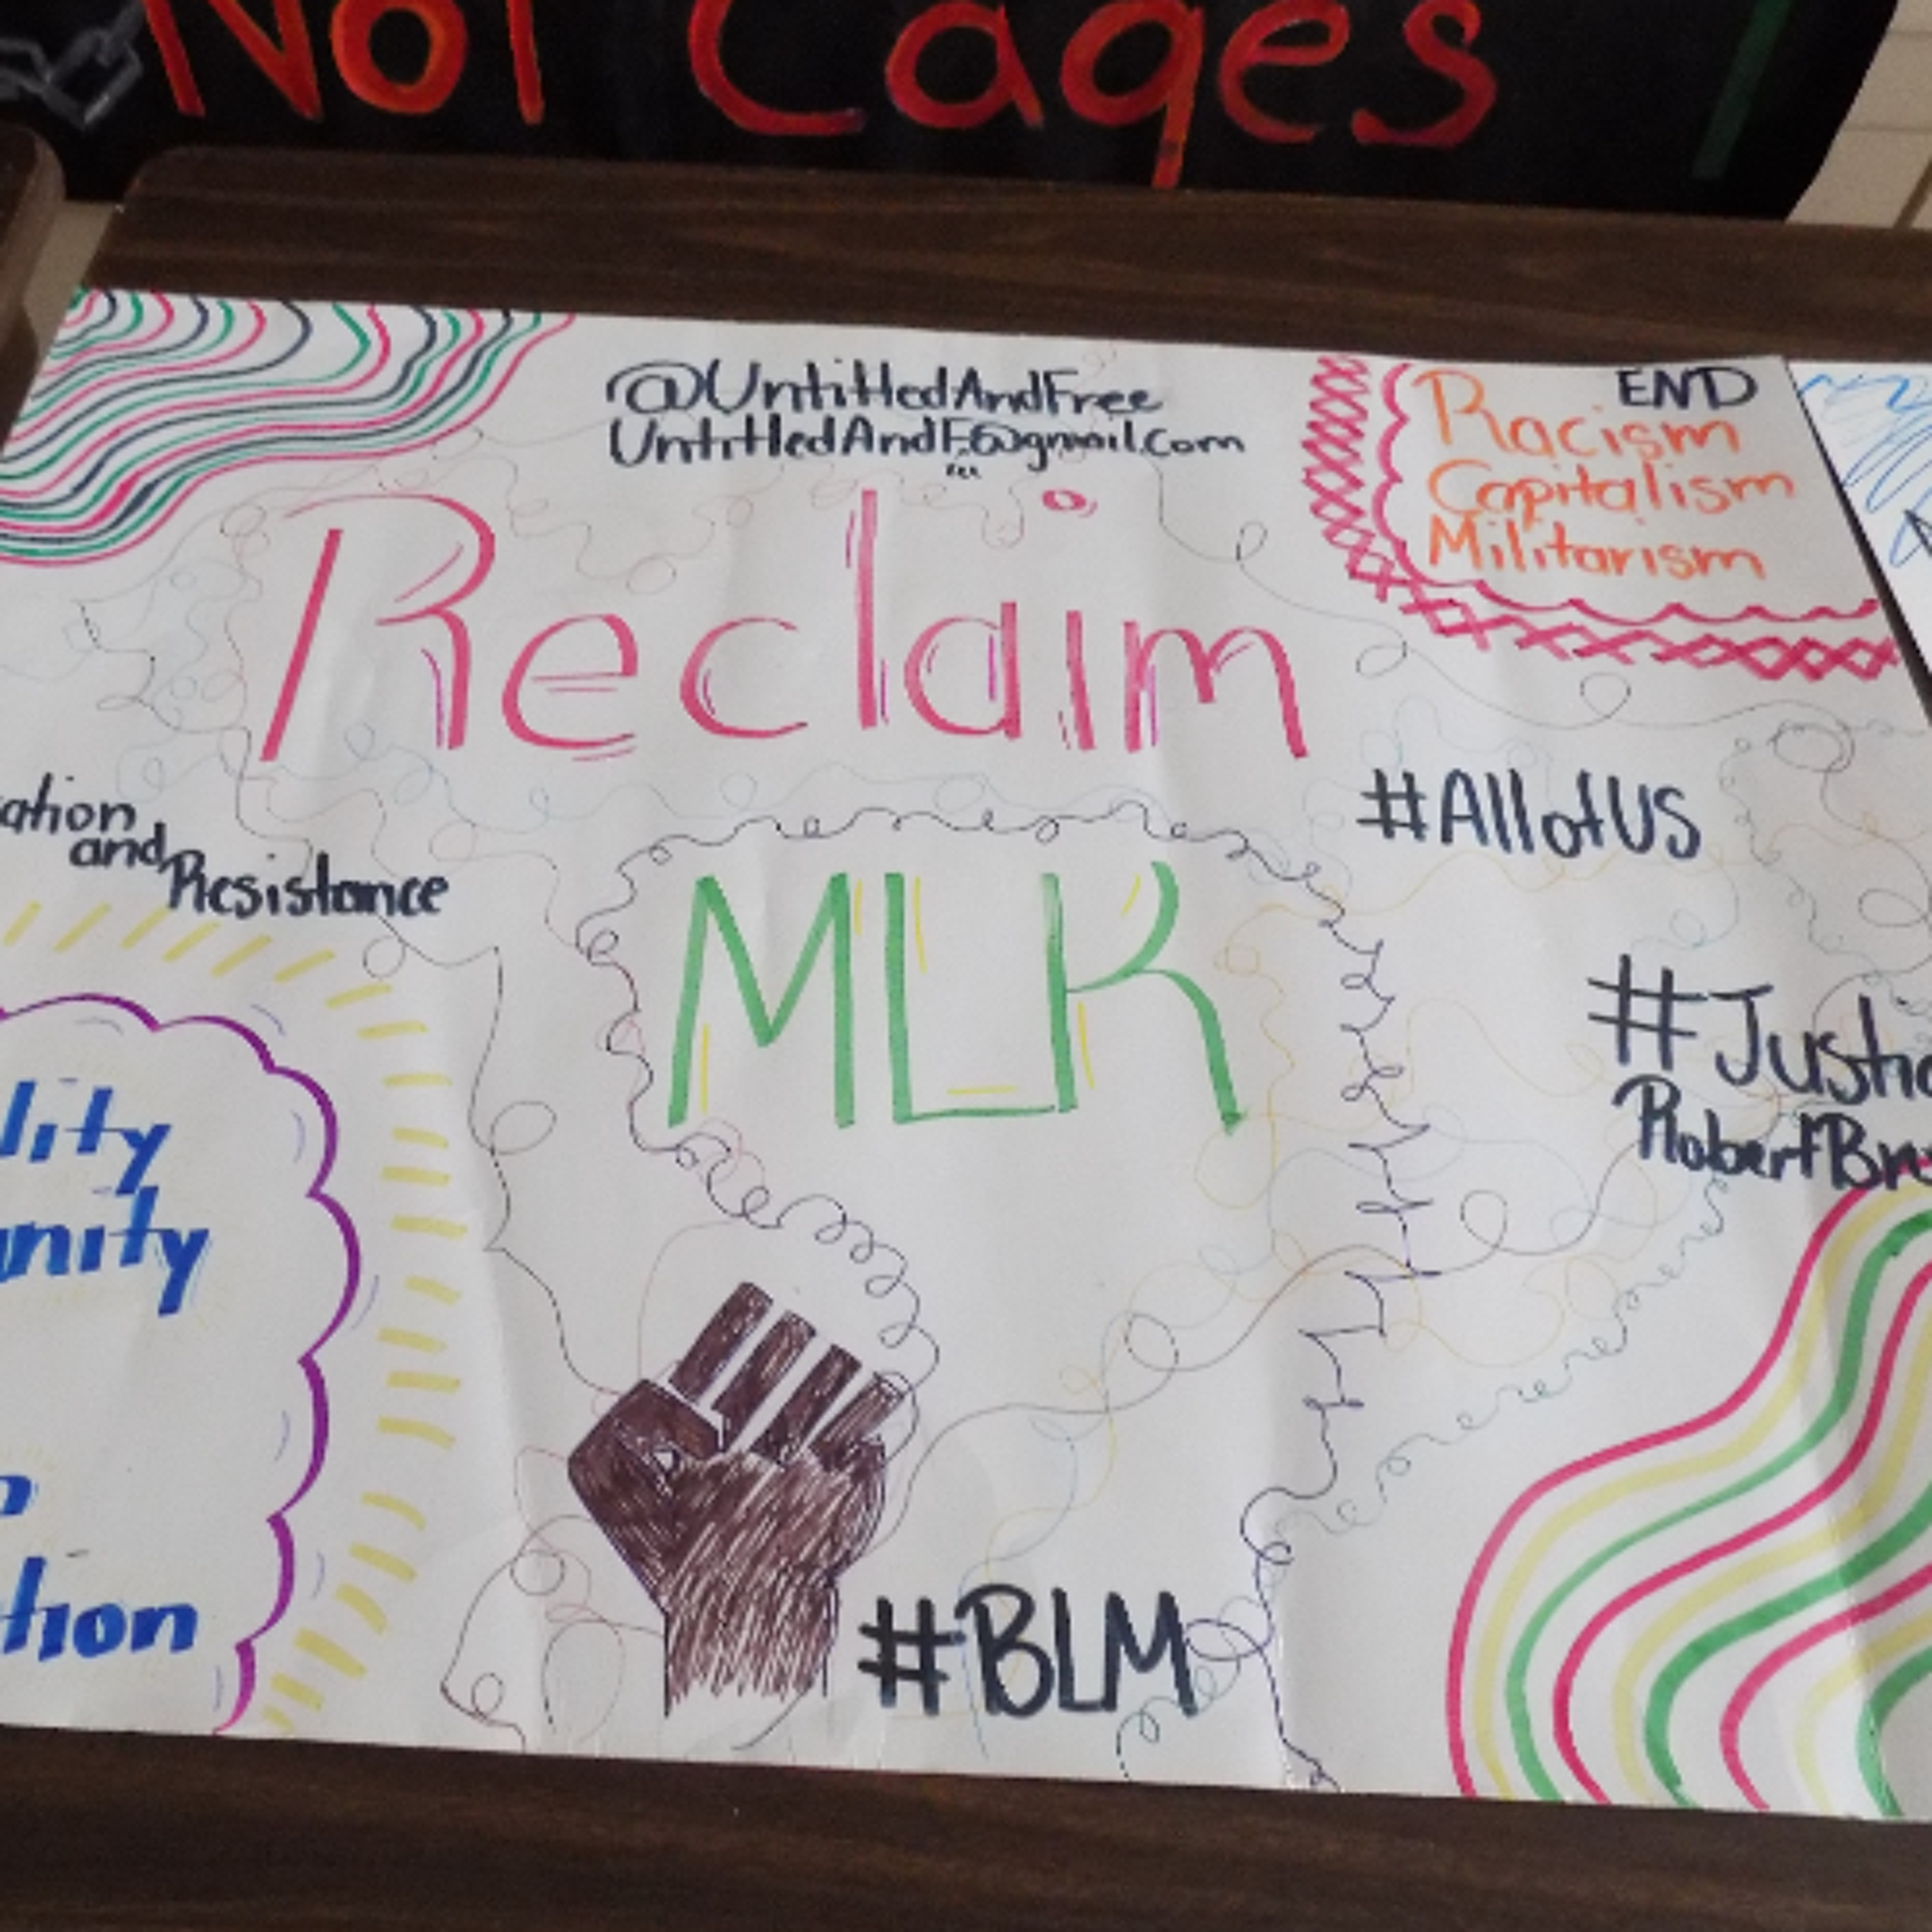 Not Cages
@UntitledAndFree
UntitledAndF...@gmail.com
END
Racism
Capitalism
Militarism
Reclaim
MLK
#AllofUS
ation
and
Resistance
#Justic
RobertBr
lity
unity
tion
#BLM